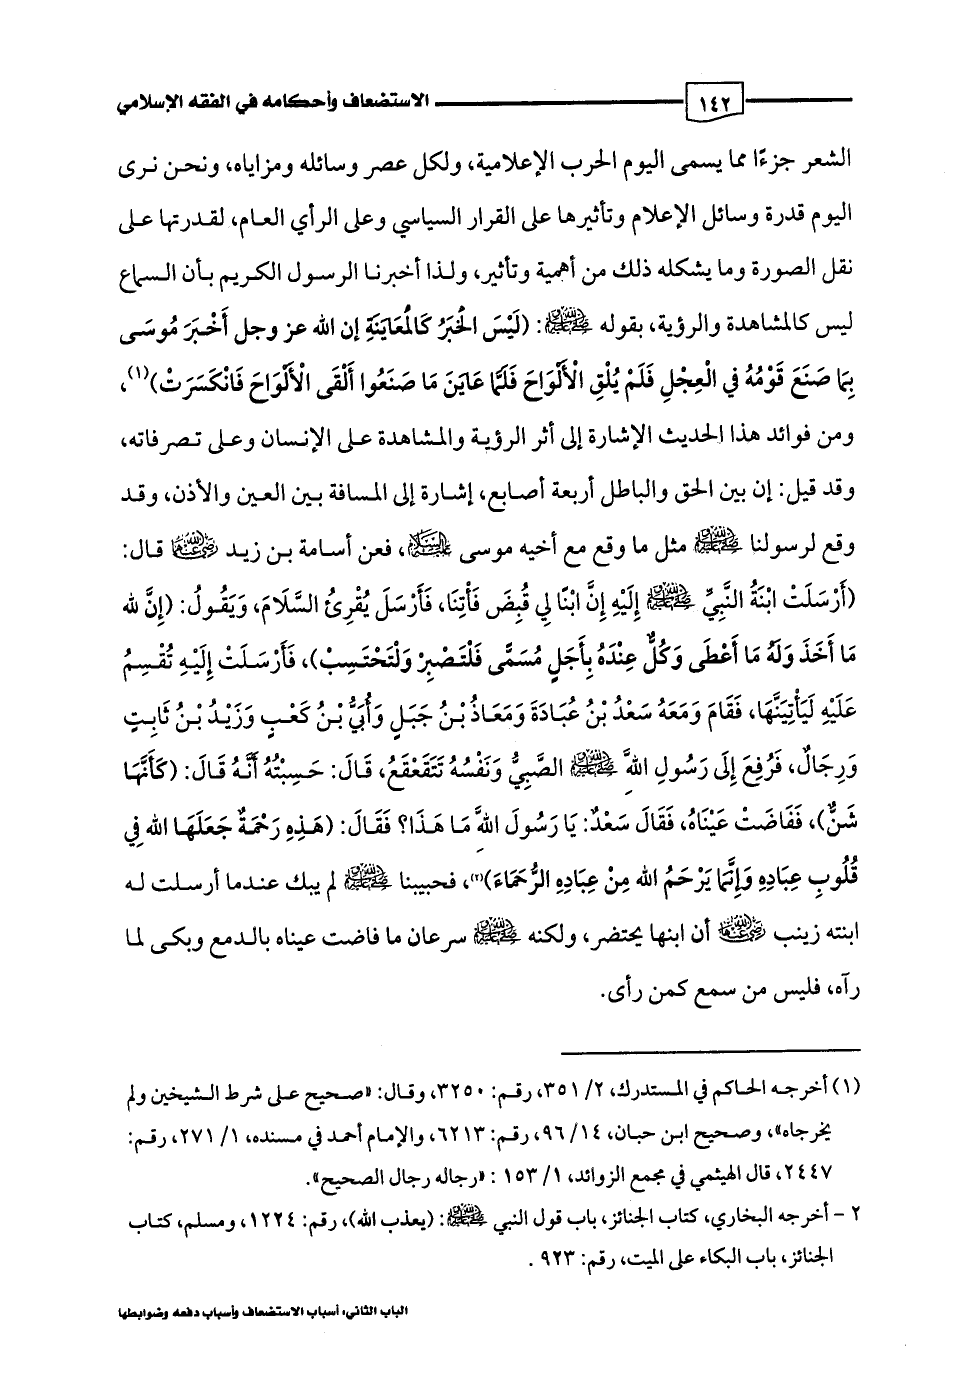 ١٤٢ الاستضعاف وأحكامه في الفقه الإسلامي
الشعر جزءًا مما يسمى اليوم الحرب الإعلامية، ولكل عصر وسائله ومزاياه، ونحن نرى
اليوم قدرة وسائل الإعلام وتأثيرها على القرار السياسي وعلى الرأي العام، لقدرتها على
نقل الصورة وما يشكله ذلك من أهمية وتأثير، ولذا أخبرنا الرسول الكريم بأن السماع
ليس كالمشاهدة والرؤية، بقوله ﷺ: (لَيْسَ الخَبَرُ كَالمُعَايَنَةِ إن الله عز وجل أَخْبَرَ مُوسَى
بِمَا صَنَعَ قَوْمُهُ فِي الْعِجْلِ فَلَمْ يُلْقِ الْأَلْوَاحَ فَلَمَّا عَايَنَ مَا صَنَعُوا أَلْقَى الْأَلْوَاحَ فَانْكَسَرَتْ)(١)،
ومن فوائد هذا الحديث الإشارة إلى أثر الرؤية والمشاهدة على الإنسان وعلى تصرفاته،
وقد قيل: إن بين الحق والباطل أربعة أصابع، إشارة إلى المسافة بين العين والأذن، وقد
وقع لرسولنا ﷺ مثل ما وقع مع أخيه موسى عليه السلام، فعن أسامة بن زيد رضي الله عنهما قال:
(أَرْسَلَتْ ابْنَةُ النَّبِيِّ ﷺ إِلَيْهِ إِنَّ ابْنًا لِي قُبِضَ فَأْتِنَا، فَأَرْسَلَ يُقْرِئُ السَّلَامَ، وَيَقُولُ: (إِنَّ لله
مَا أَخَذَ وَلَهُ مَا أَعْطَى وَكُلٌّ عِنْدَهُ بِأَجَلٍ مُسَمًّى فَلْتَصْبِرْ وَلْتَحْتَسِبْ)، فَأَرْسَلَتْ إِلَيْهِ تُقْسِمُ
عَلَيْهِ لَيَأْتِيَنَّهَا، فَقَامَ وَمَعَهُ سَعْدُ بْنُ عُبَادَةَ وَمَعَاذُ بْنُ جَبَلٍ وَأُبَيُّ بْنُ كَعْبٍ وَزَيْدُ بْنُ ثَابِتٍ
وَرِجَالٌ، فَرُفِعَ إِلَى رَسُولِ اللهِ ﷺ الصَّبِيُّ وَنَفْسُهُ تَتَقَعْقَعُ، قَالَ: حَسِبْتُهُ أَنَّهُ قَالَ: (كَأَنَّهَا
شَنٌّ)، فَفَاضَتْ عَيْنَاهُ، فَقَالَ سَعْدٌ: يَا رَسُولَ اللهِ مَا هَذَا؟ فَقَالَ: (هَذِهِ رَحْمَةٌ جَعَلَهَا الله فِي
قُلُوبِ عِبَادِهِ وَإِنَّمَا يَرْحَمُ الله مِنْ عِبَادِهِ الرُّحَمَاءَ)(٢)، فحبيبنا ﷺ لم يبك عندما أرسلت له
ابنته زينب رضي الله عنها أن ابنها يحتضر، ولكنه ﷺ سرعان ما فاضت عيناه بالدمع وبكى لما
رآه، فليس من سمع كمن رأى.
(١) أخرجه الحاكم في المستدرك، ٢/ ٣٥١، رقم: ٣٢٥٠، وقال: «صحيح على شرط الشيخين ولم
يخرجاه»، وصحيح ابن حبان، ١٤/ ٩٦، رقم: ٦٢١٣، والإمام أحمد في مسنده، ١/ ٢٧١، رقم:
٢٤٤٧، قال الهيثمي في مجمع الزوائد، ١/ ١٥٣ : «رجاله رجال الصحيح».
٢ - أخرجه البخاري، كتاب الجنائز، باب قول النبي ﷺ: (يعذب الله)، رقم: ١٢٢٤، ومسلم، كتاب
الجنائز، باب البكاء على الميت، رقم: ٩٢٣ .
الباب الثاني: أسباب الاستضعاف وأسباب دفعه وضوابطها